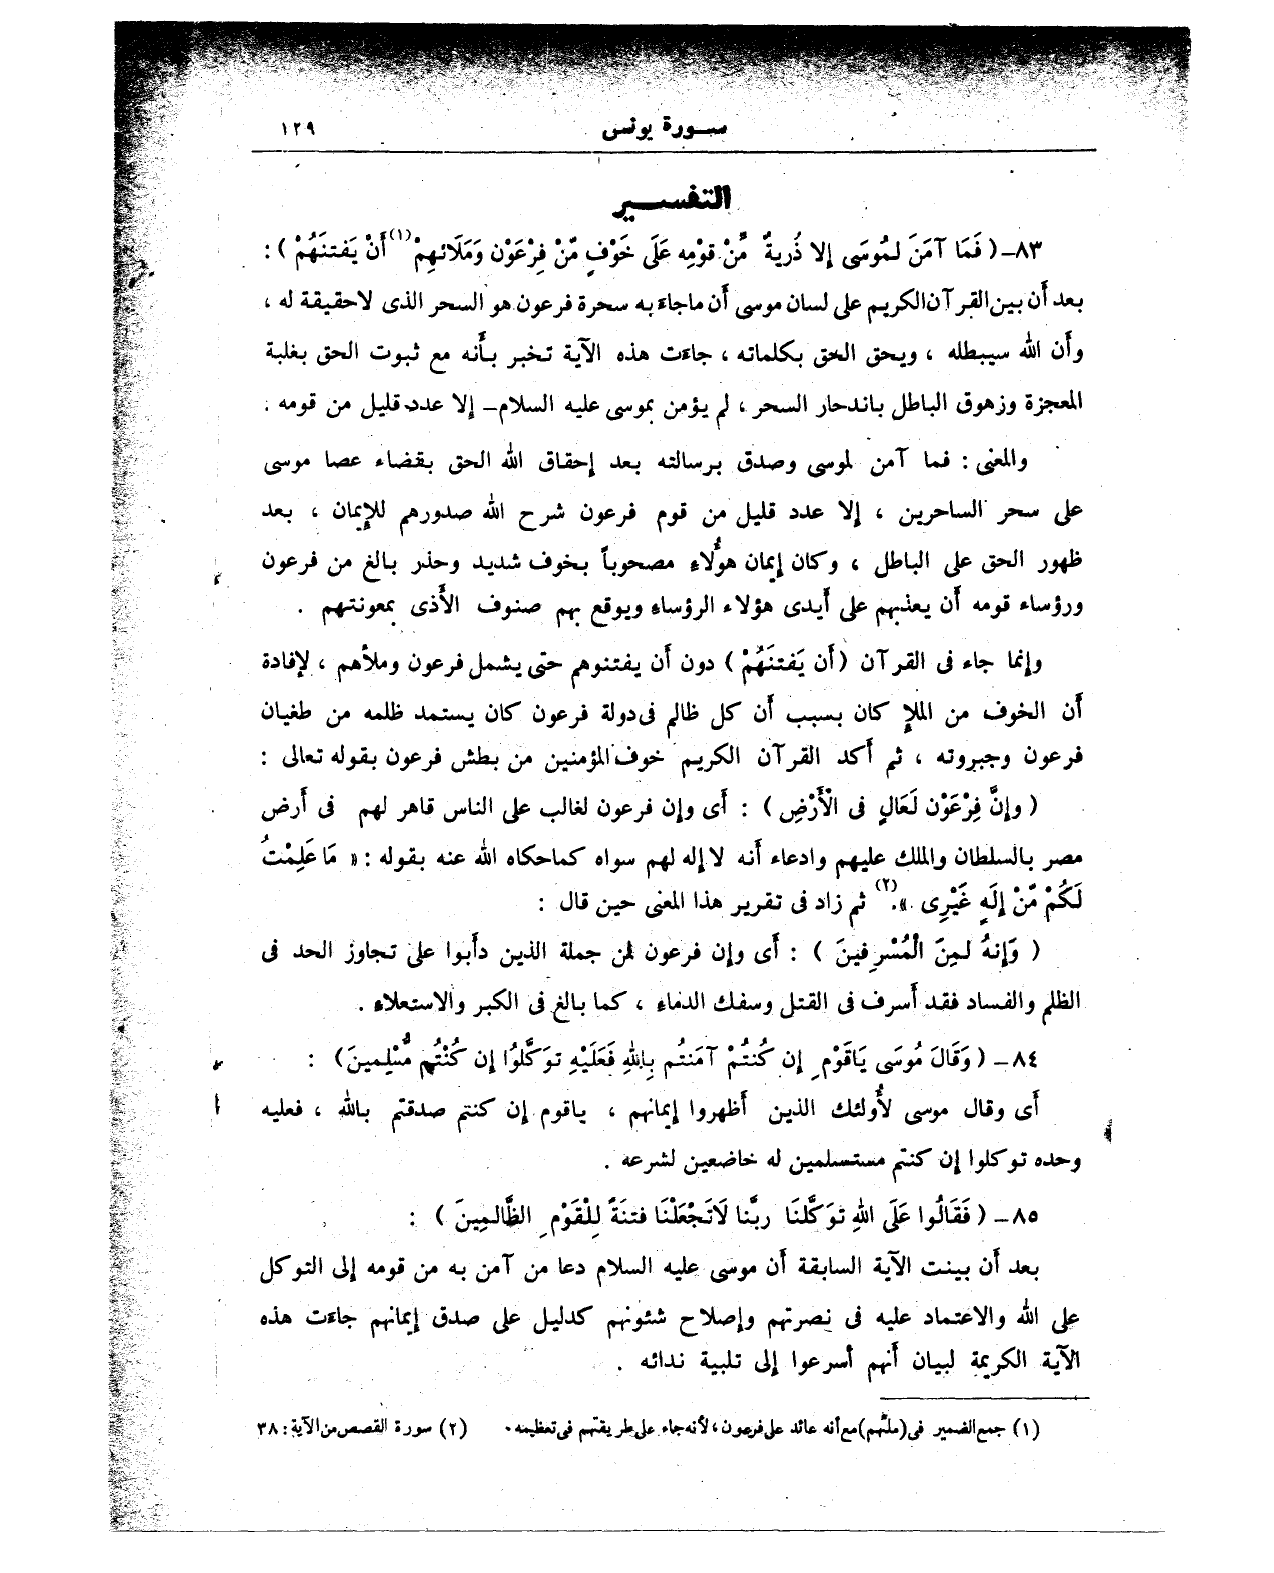 سورة يونس ١٢٩
التفسير
٨٣ـ ( فَمَا آمَنَ لِمُوسَى إلا ذُريةٌ مِّنْ قومِه عَلَى خَوْفٍ مِّنْ فِرْعَوْن وَمَلَائهِمْ (١) أَنْ يَفتنَهُمْ ) :
بعد أن بين القرآن الكريم على لسان موسى أن ماجاء به سحرة فرعون هو السحر الذى لاحقيقة له ،
وأن الله سيبطله ، ويحق الحق بكلماته ، جاءت هذه الآية تخبر بأنه مع ثبوت الحق بغلبة
المعجزة وزهوق الباطل باندحار السحر ، لم يؤمن بموسى عليه السلام ـ إلا عدد قليل من قومه .
والمعنى : فما آمن لموسى وصدق برسالته بعد إحقاق الله الحق بقضاء عصا موسى
على سحر الساحرين ، إلا عدد قليل من قوم فرعون شرح الله صدورهم للإيمان ، بعد
ظهور الحق على الباطل ، وكان إيمان هؤلاء مصحوباً بخوف شديد وحذر بالغ من فرعون
ورؤساء قومه أن يعذبهم على أيدى هؤلاء الرؤساء ويوقع بهم صنوف الأذى بمعونتهم .
وإنما جاء فى القرآن (أَن يَفتنَهُمْ ) دون أن يفتنوهم حتى يشمل فرعون وملأهم ، لإفادة
أن الخوف من الملإ كان بسبب أن كل ظالم فى دولة فرعون كان يستمد ظلمه من طغيان
فرعون وجبروته ، ثم أكد القرآن الكريم خوف المؤمنين من بطش فرعون بقوله تعالى :
( وإنَّ فِرْعَوْن لَعَالٍ فى الْأَرْضِ ) : أى وإن فرعون لغالب على الناس قاهر لهم فى أرض
مصر بالسلطان والملك عليهم وادعاء أنه لا إله لهم سواه كماحكاه الله عنه بقوله : « مَا عَلِمْتُ
لَكُمْ مِّنْ إِلَهٍ غَيْرِى ». (٢) ثم زاد فى تقرير هذا المعنى حين قال :
( وَإنهُ لَمِنَ الْمُسْرِفِينَ ) : أى وإن فرعون لمن جملة الذين دأبوا على تجاوز الحد فى
الظلم والفساد فقد أسرف فى القتل وسفك الدماء ، كما بالغ فى الكبر والاستعلاء .
٨٤ ـ ( وَقَالَ مُوسَى يَاقَوْمِ إن كُنتُمْ آمَنتُم بِاللهِ فَعَلَيْهِ توَكَّلوُا إن كُنْتُم مُّسْلِمينَ) :
أى وقال موسى لأُولئك الذين أظهروا إيمانهم ، ياقوم إن كنتم صدقتم بالله ، فعليه
وحده توكلوا إن كنتم مستسلمين له خاضعين لشرعه .
٨٥ ـ ( فَقَالُوا عَلَى اللهِ توَكَّلنَا ربَّنا لَاتَجْعَلْنَا فتنَةً لِلْقَوْمِ الظَّالِمِينَ ) :
بعد أن بينت الآية السابقة أن موسى عليه السلام دعا من آمن به من قومه إلى التوكل
على الله والاعتماد عليه فى نصرتهم وإصلاح شئونهم كدليل على صدق إيمانهم جاءت هذه
الآية الكريمة لبيان أنهم أسرعوا إلى تلبية ندائه .
(١) جمع الضمير فى (ملئهم) مع أنه عائد على فرعون ، لأنه جاء على طريقتهم فى تعظيمه . (٢) سورة القصص من الآية : ٣٨